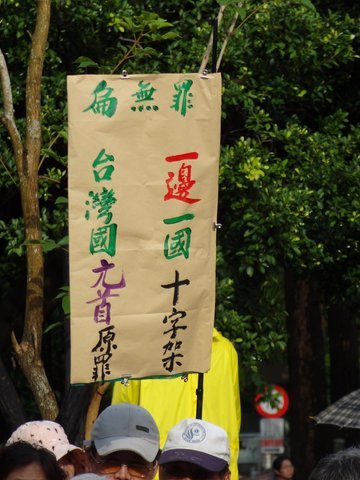 扁無罪
一邊一國十字架
台灣國元首原罪